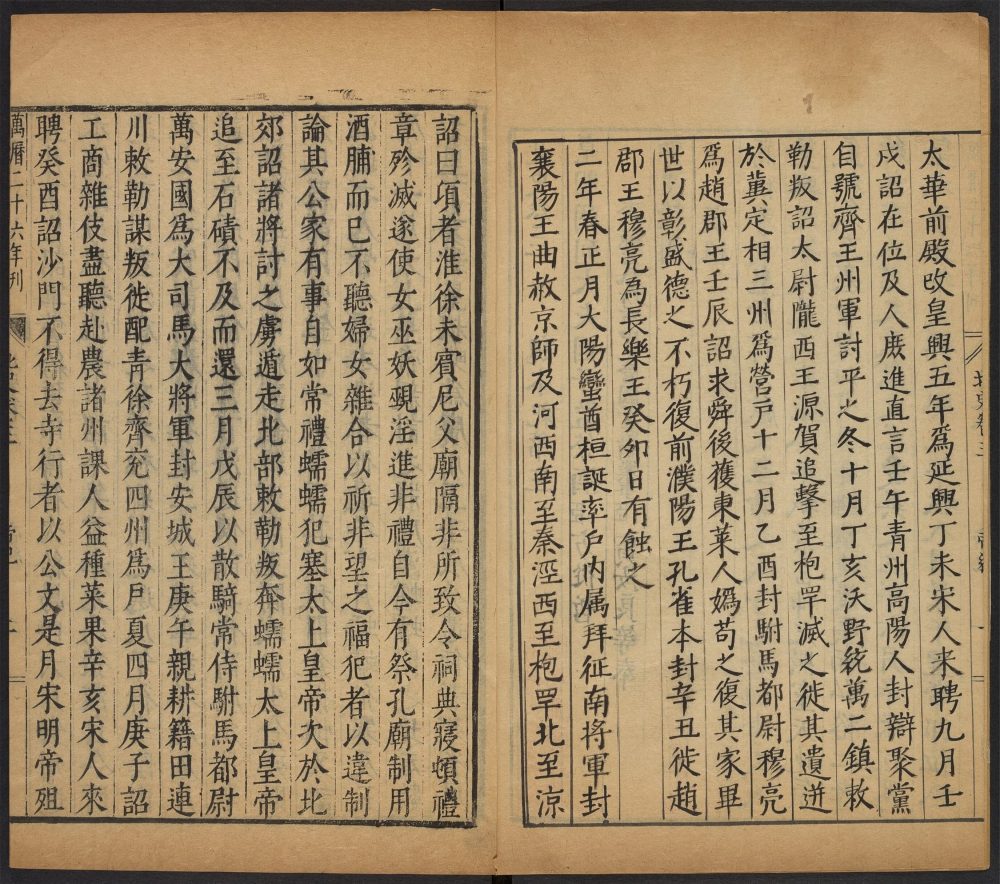 太華前殿改皇興五年爲延興丁未宋人来聘九月壬
戌詔在位及人庶進直言壬午青州高陽人封辯聚黨
自號齊王州軍討平之冬十月丁亥沃野統萬二鎮敕
勒叛詔太尉隴西王源賀追撃至枹罕滅之徙其遺迸
於冀定相三州爲營戸十二月乙酉封駙馬都尉穆亮
爲趙郡王壬辰詔求舜後獲東萊人嬀苟之復其家畢
世以彰盛德之不朽復前濮陽王孔雀本封辛丑徙趙
郡王穆亮為長樂王癸卯日有蝕之
二年春正月大陽蠻酋桓誕率戸内属拜征南將軍封
襄陽王曲赦京師及河西南至秦涇西至枹罕北至涼
北史卷三
詔曰頃者淮徐未賓尼父廟隔非所致令祠典寢頓禮
章殄滅遂使女巫妖覡淫進非禮自今有祭孔廟制用
酒脯而已不聽婦女雜合以祈非望之福犯者以違制
論其公家有事自如常禮蠕蠕犯塞太上皇帝次於北
郊詔諸將討之虜遁走北部敕勒叛奔蠕蠕太上皇帝
追至石磧不及而還三月戊辰以散騎常侍駙馬都尉
萬安國爲大司馬大將軍封安城王庚午親耕籍田連
川敕勒謀叛徙配青徐齊兖四州爲戸夏四月庚子詔
工商雜伎盡聽赴農諸州課人益種菜果辛亥宋人來
聘癸酉詔沙門不得去寺行者以公文是月宋明帝殂
萬曆二十六年刊